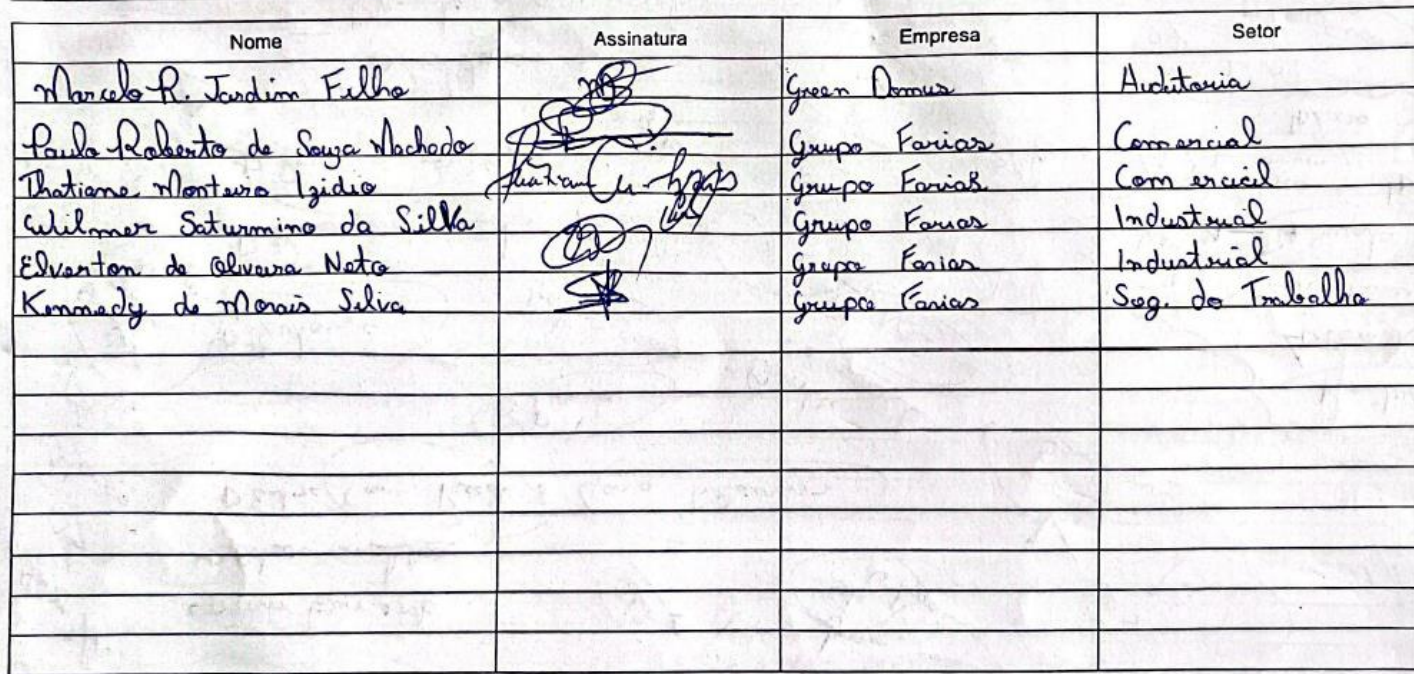 Nome Assinatura Empresa Setor
Marcelo R. Jardim Filho Green Domus Auditoria
Paulo Roberto de Souza Machado Grupo Farias Comercial
Thatiane Monteiro Izidio Grupo Farias Comercial
Wilmar Saturnino da Silva Grupo Farias Industrial
Elverton de Oliveira Neto Grupo Farias Industrial
Kennedy de Morais Silva Grupo Farias Seg. do Trabalho